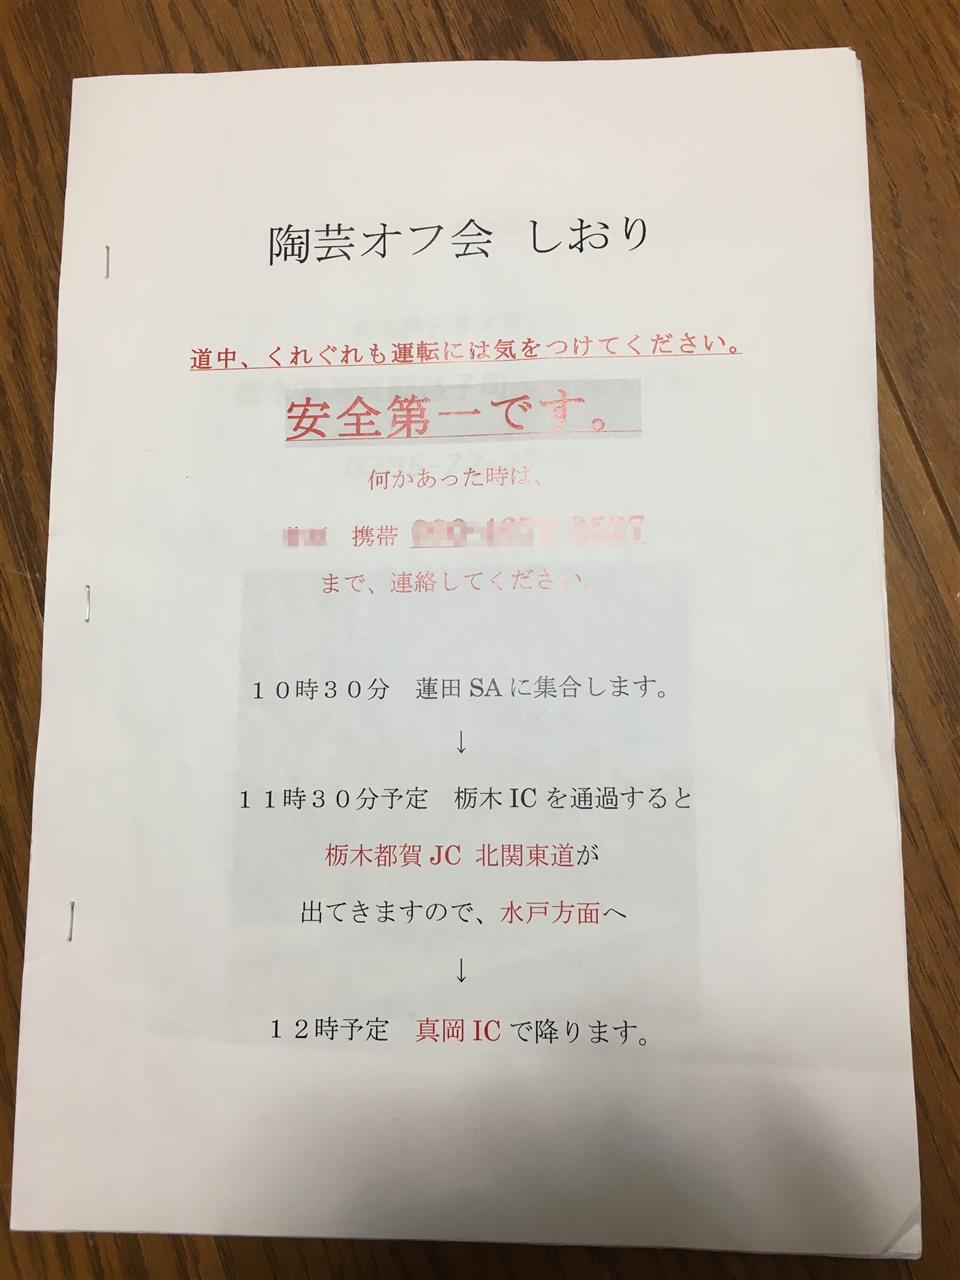 陶芸オフ会 しおり
道中、くれぐれも運転には気をつけてください。
安全第一です。
何かあった時は、
携帯
まで、連絡してください。
１０時３０分　蓮田 SA に集合します。
↓
１１時３０分予定　栃木 IC を通過すると
栃木都賀 JC 北関東道が
出てきますので、水戸方面へ
↓
１２時予定　真岡 IC で降ります。